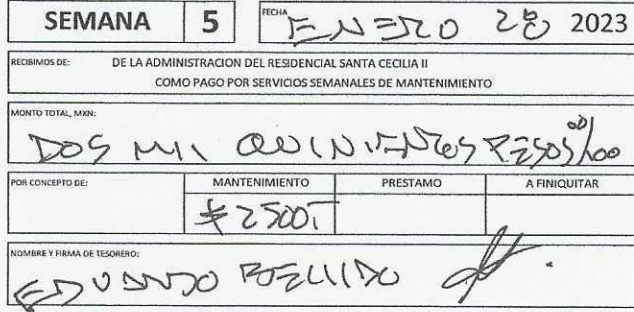 SEMANA 5 FECHA ENERO 28 2023
RECIBIMOS DE: DE LA ADMINISTRACION DEL RESIDENCIAL SANTA CECILIA II
COMO PAGO POR SERVICIOS SEMANALES DE MANTENIMIENTO
MONTO TOTAL, MXN:
DOS MIL QUINIENTOS PESOS 00/100
POR CONCEPTO DE: MANTENIMIENTO PRESTAMO A FINIQUITAR
$2500.
NOMBRE Y FIRMA DE TESORERO:
EDUARDO BELLIDO